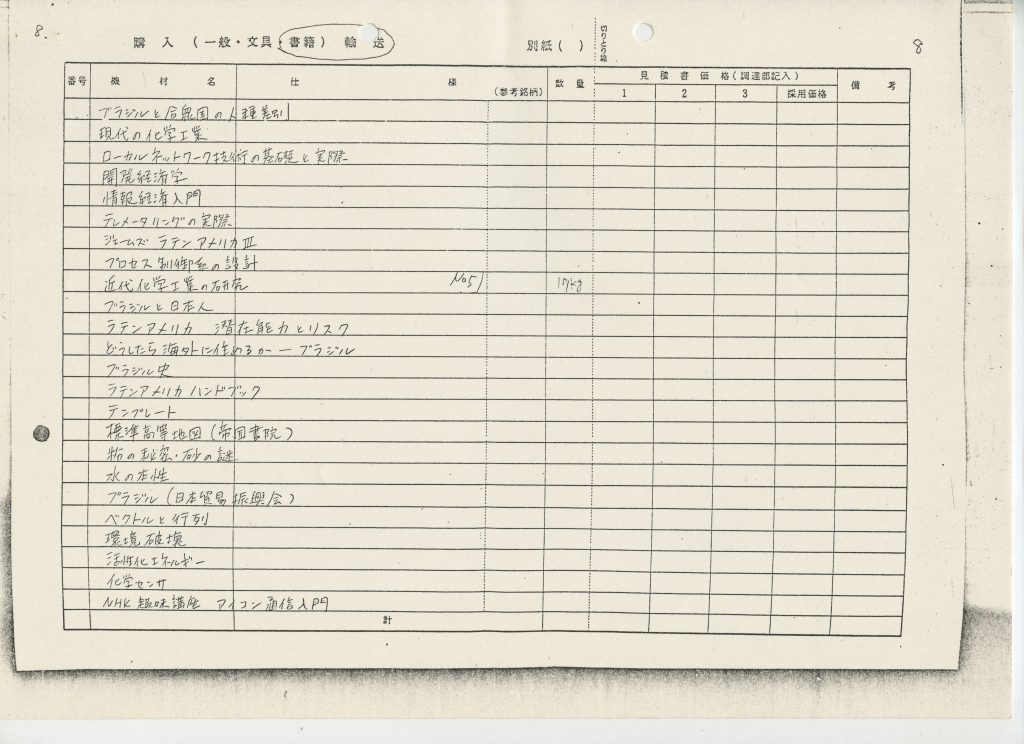 8.
購入 (一般・文具・書籍) 輸送 別紙( ) 切りとり線 8
番号 機材名 仕様 (参考銘柄) 数量 見積書価格(調達部記入) 備考
1 2 3 採用価格
ブラジルと合衆国の人種差別
現代の化学工業
ローカルネットワーク技術の基礎と実際
開発経済学
情報経済入門
テレメータリングの実際
ジェームズ ラテンアメリカIII
プロセス制御系の設計
近代化学工業の研究 No51 17kg
ブラジルと日本人
ラテンアメリカ 潜在能力とリスク
どうしたら海外に住めるか ― ブラジル
ブラジル史
ラテンアメリカ ハンドブック
テンプレート
標準高等地図(帝国書院)
粉の秘密・砂の謎
水の本性
ブラジル(日本貿易振興会)
ベクトルと行列
環境破壊
活性化エネルギー
化学センサ
NHK 趣味講座 マイコン通信入門
計